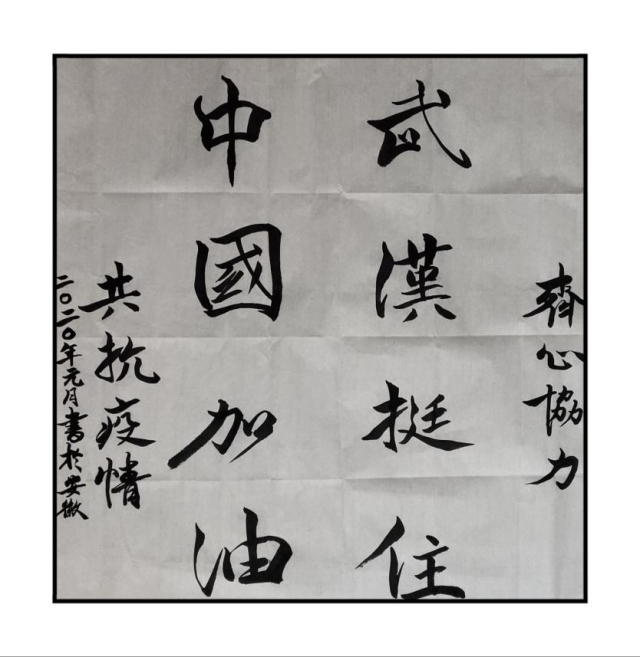 齊心協力
武漢挺住
中國加油
共抗疫情
二〇二〇年元月書於安徽